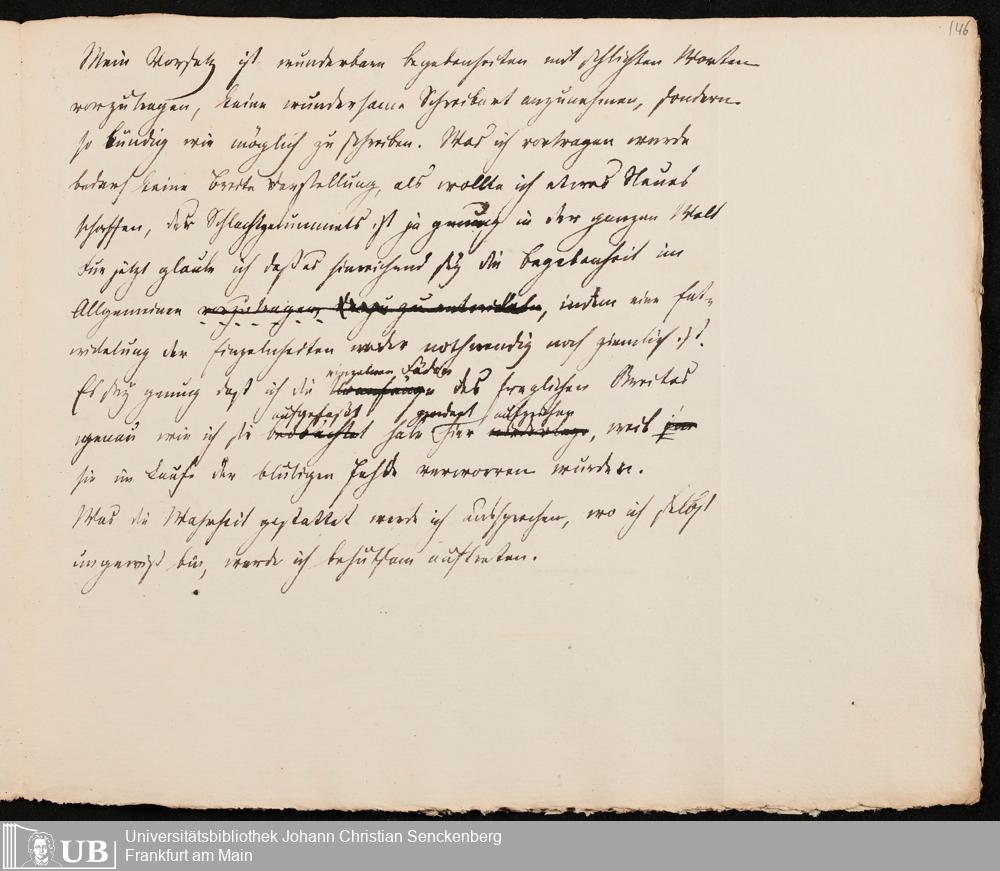 146
Mein Vorsatz ist wunderbare begebenheiten mit schlichten Worten
vorzutragen, keine wundersame Schreibart anzunehmen, sondern
so bündig wie möglich zu schreiben. Was ich vortragen werde
bedarf keine breite Vorstellung, als wollte ich etwas Neues
schaffen, des Schlachtgetümmels ist ja genung in der ganzen Welt
Für jetzt glaube ich daß es hinreichend sey die begebenheit im
Allgemeinen vorzutragen zu entwickeln, indem eine Ent-
wickelung der Einzelnheiten weder nothwendig noch ziemlich ist.
Es sey genung daß ich die
einzelnen Fäden
des fraglichen Streites
aufgefasst gerade aufzusehen
genau wie ich sie betrachtet habe hier, weil
sie im Laufe der blutigen Fehde verworren wurden.
Was die Wahrheit gestattet werde ich aussprechen, wo ich selbst
ungewiß bin, werde ich behutsam auftreten.
UB
Universitätsbibliothek Johann Christian Senckenberg
Frankfurt am Main